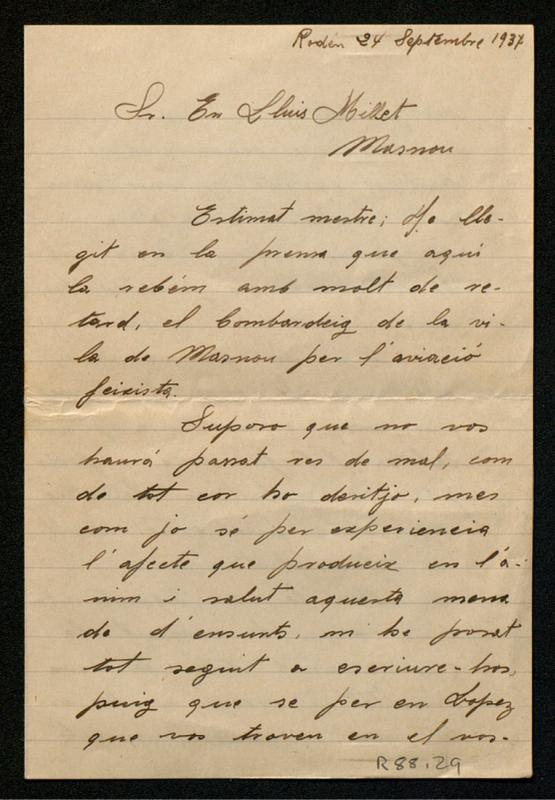 Rodén 24 Septembre 1937
Sr. En Lluis Millet
Masnou
Estimat mestre; He lle-
git en la prensa que aqui
la rebém amb molt de re-
tard, el bombardeig de la vi-
la de Masnou per l'aviació
feixista.
Suposo que no vos
haurá passat res de mal, com
de tot cor ho desitjo, mes
com jo sé per experiencia
l'afecte que produeix en l'á-
nim i salut aquesta mena
de d'ensunts, m he posat
tot seguit a escriure-hos,
puig que se per en Lopez
que vos troveu en el vos-
R 88.29